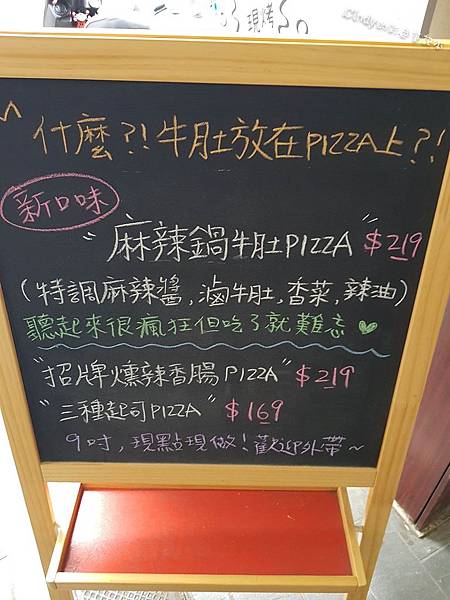 現烤
什麼?!牛肚放在PIZZA上?!
新口味
"麻辣鍋牛肚PIZZA" $219
(特調麻辣醬,滷牛肚,香菜,辣油)
聽起來很瘋狂但吃了就難忘♥
"招牌燻辣香腸PIZZA" $219
"三種起司PIZZA" $169
9吋,現點現做!歡迎外帶~